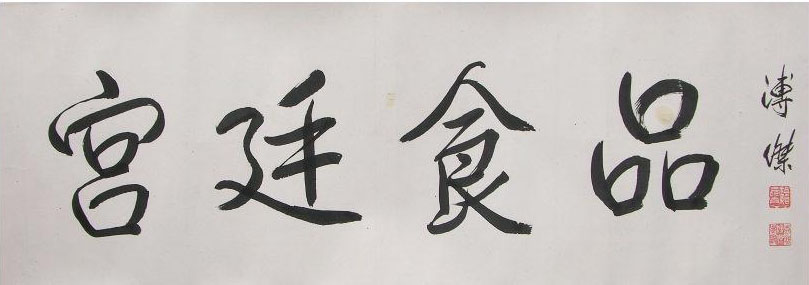 宫廷食品
溥傑